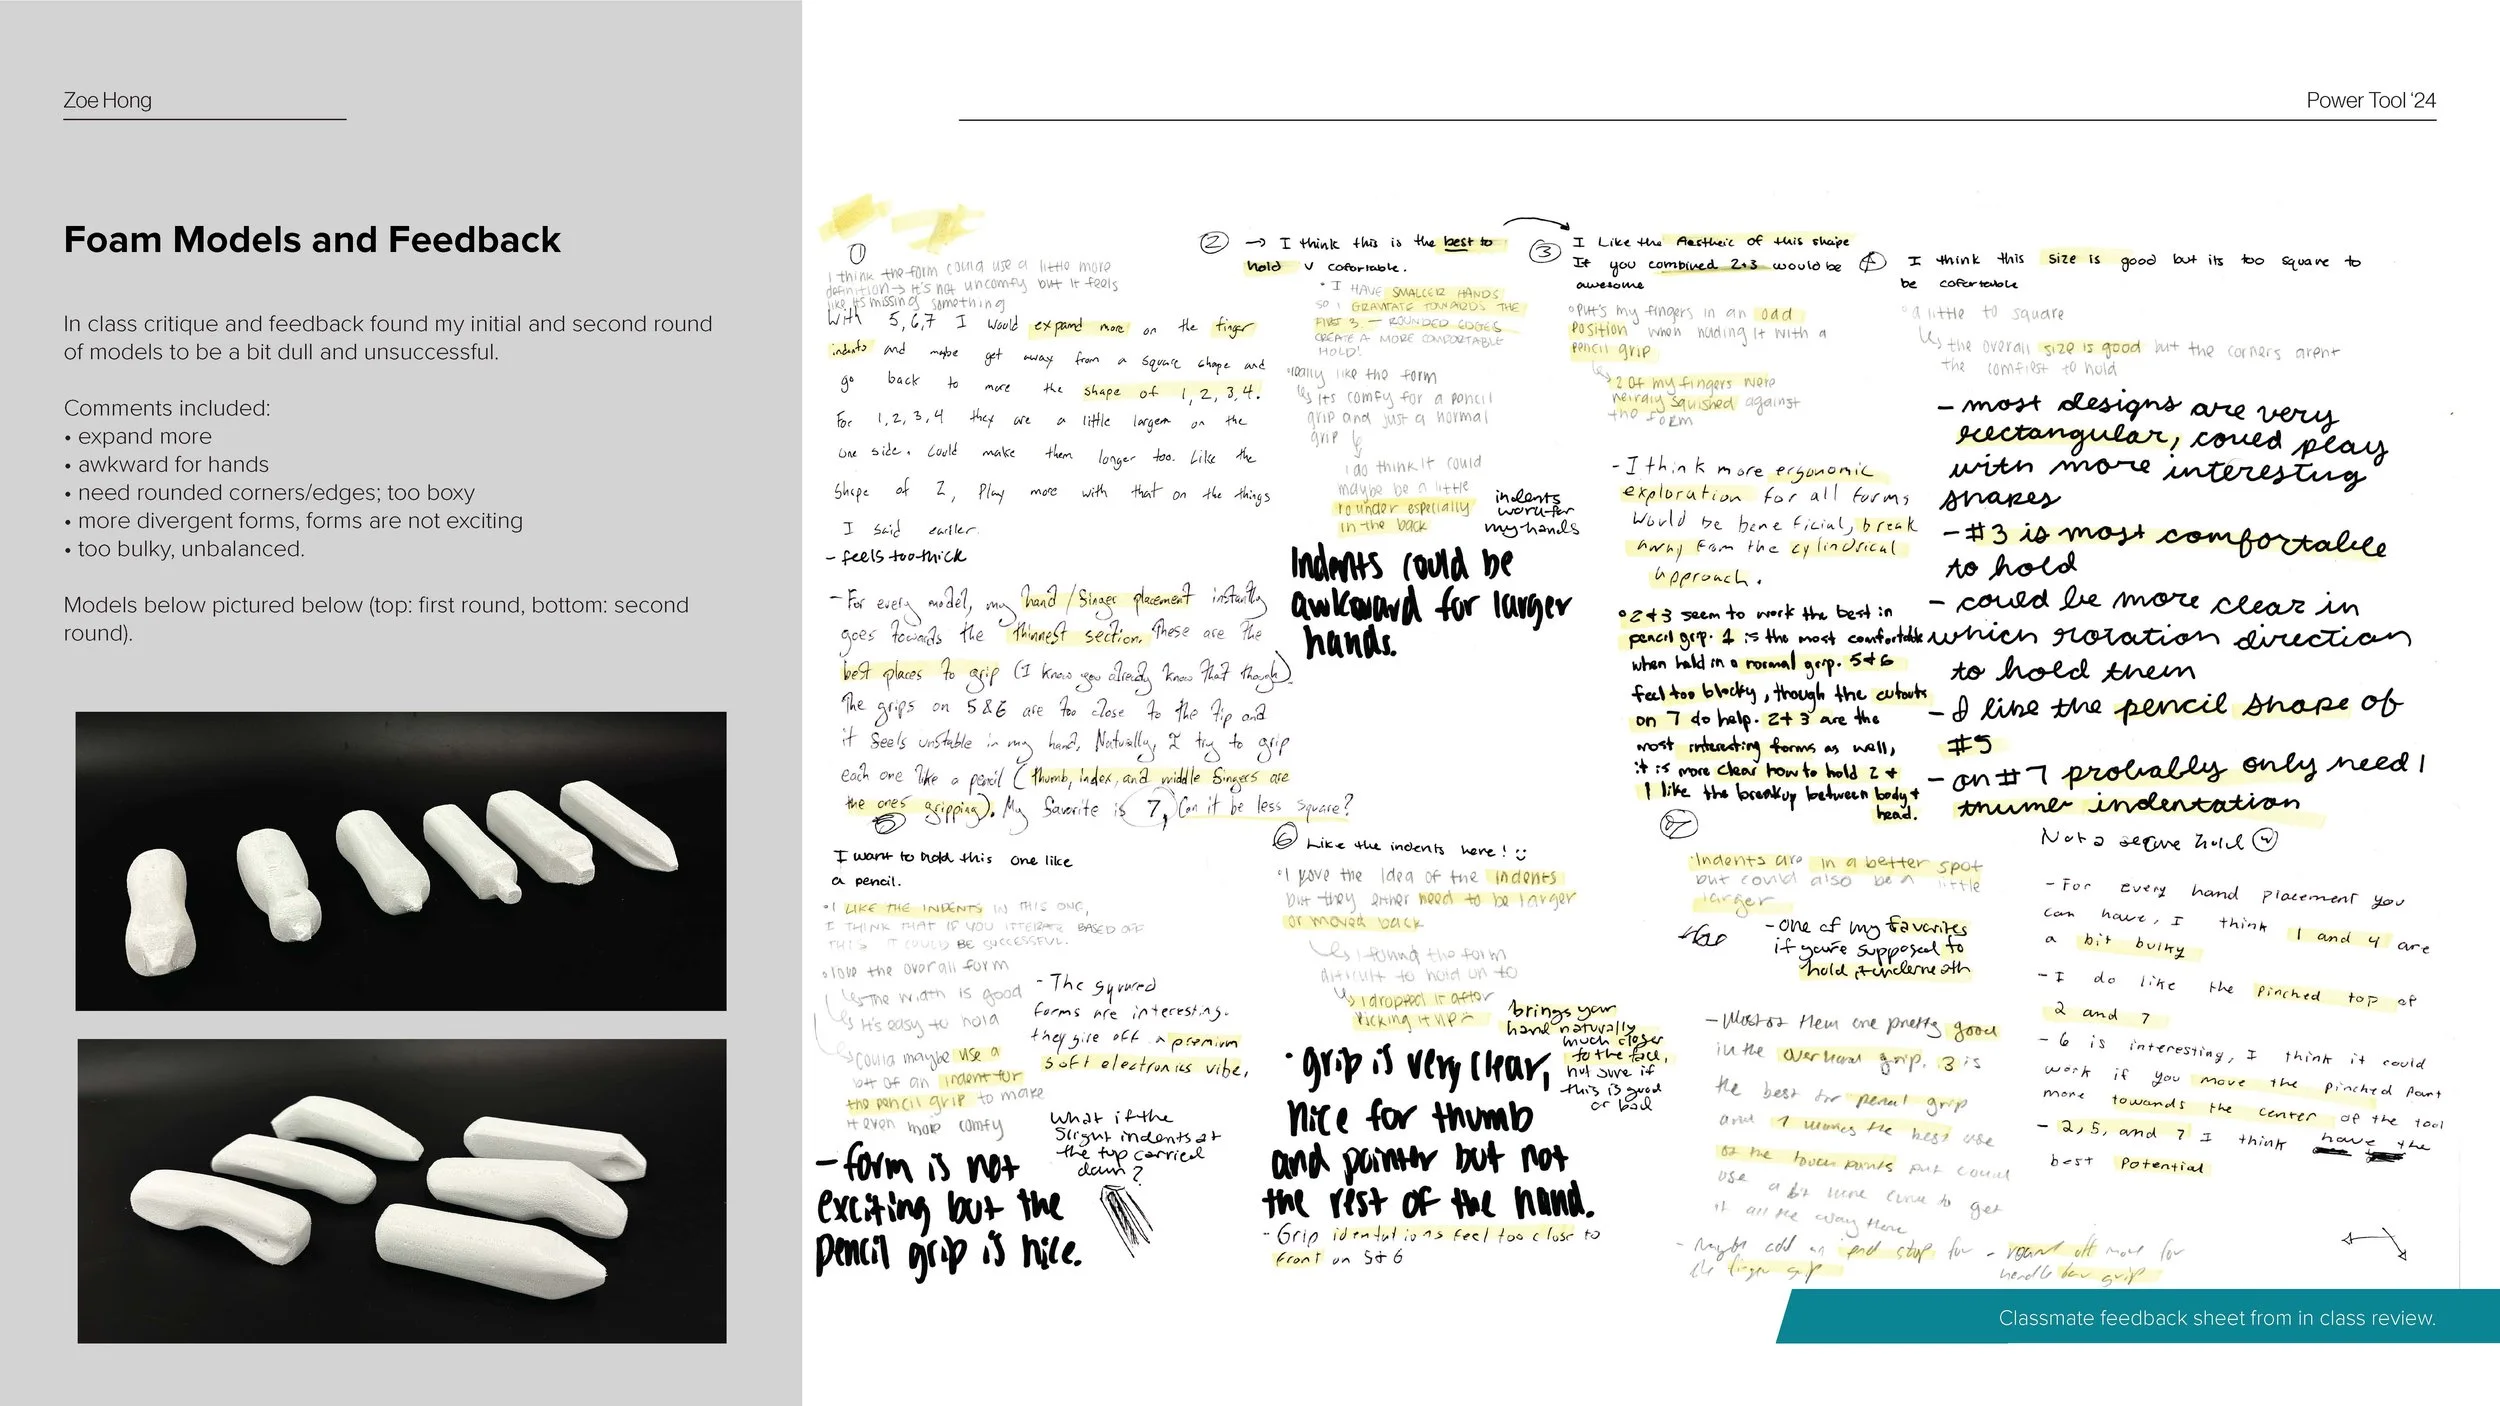 Zoe Hong
Power Tool ‘24
Foam Models and Feedback
In class critique and feedback found my initial and second round
of models to be a bit dull and unsuccessful.
Comments included:
• expand more
• awkward for hands
• need rounded corners/edges; too boxy
• more divergent forms, forms are not exciting
• too bulky, unbalanced.
Models below pictured below (top: first round, bottom: second
round).
1
I think the form could use a little more
definition → it's not uncomfy but it feels
like its missing something
With 5,6,7 I would expand more on the finger
indents and maybe get away from a square shape and
go back to more the shape of 1, 2, 3, 4.
For 1, 2, 3, 4 they are a little larger on the
one side. Could make them longer too. Like the
shape of 2, Play more with that on the things
I said earlier.
- feels too thick
- For every model, my hand/finger placement instantly
goes towards the thinnest section. These are the
best places to grip (I know you already know that though).
The grips on 5&6 are too close to the tip and
it feels unstable in my hand. Naturally, I try to grip
each one like a pencil (thumb, index, and middle fingers are
the ones gripping). My favorite is 7, Can it be less square?
2 → I think this is the best to
hold v cofortable.
• I HAVE SMALLER HANDS
SO I GRAVITATE TOWARDS THE
FIRST 3. — ROUNDED EDGES
CREATE A MORE COMFORTABLE
HOLD!
•really like the form
↳ its comfy for a pencil
grip and just a normal
grip
I do think it could
maybe be a little
rounder especially
in the back
indents
work for
my hands
Indents could be
awkward for larger
hands.
3 I Like the Aestheic of this shape
If you combined 2+3 would be
awesome
•put's my fingers in an odd
position when holding it with a
pencil grip
↳ 2 of my fingers were
squished against
the form
- I think more ergonomic
exploration for all forms
would be beneficial, break
away from the cylindrical
approach.
• 2+3 seem to work the best in
pencil grip. 1 is the most comfortable
when held in a normal grip. 5+6
feel too blocky, though the cutouts
on 7 do help. 2+3 are the
most interesting forms as well,
it is more clear how to hold 2 +
I like the breakup between body +
head.
4 I think this size is good but its too square to
be cofortable
•a little to square
↳ the overall size is good but the corners arent
the comfiest to hold
- most designs are very
rectangular, could play
with more interesting
shapes
- #3 is most comfortable
to hold
- could be more clear in
which rotation direction
to hold them
- I like the pencil shape of
#5
- on #7 probably only need 1
thumb indentation
5
I want to hold this one like
a pencil.
•I LIKE THE INDENTS IN THIS ONE,
I THINK THAT IF YOU ITTERATE BASED OFF
THIS IT COULD BE SUCCESSFUL.
•love the overall form
↳ The width is good
↳ It's easy to hold
↳ could maybe use a
bit of an indent for
the pencil grip to make
it even more comfy
- The squared
forms are interesting.
they give off a premium
soft electronics vibe.
What if the
slight indents at
the top carried
down?
- form is not
exciting but the
pencil grip is nice.
6 Like the indents here! :)
•I love the idea of the indents
but they either need to be larger
or moved back
↳ I found the form
difficult to hold on to
↳ I dropped it after
picking it up
brings your
hand naturally
much closer
to the face,
not sure if
this is good
or bad
• grip is very clear,
nice for thumb
and pointer but not
the rest of the hand.
- Grip identations feel too close to
front on 5+6
7
•Indents are in a better spot
but could also be a little
larger
- one of my favorites
if you're supposed to
hold it underneath
Not a secure hold
- Most of them are pretty good
in the overhand grip. 3 is
the best for pencil grip
and 7 makes the best use
of the touch points but could
use a bit more curve to get
it all the way there
- Maybe add an end stop for
the finger grip
- round off more for
handle bar grip
- For every hand placement you
can have, I think 1 and 4 are
a bit bulky
- I do like the pinched top of
2 and 7
- 6 is interesting, I think it could
work if you move the pinched part
more towards the center of the tool
- 2, 5, and 7 I think have the
best potential
Classmate feedback sheet from in class review.